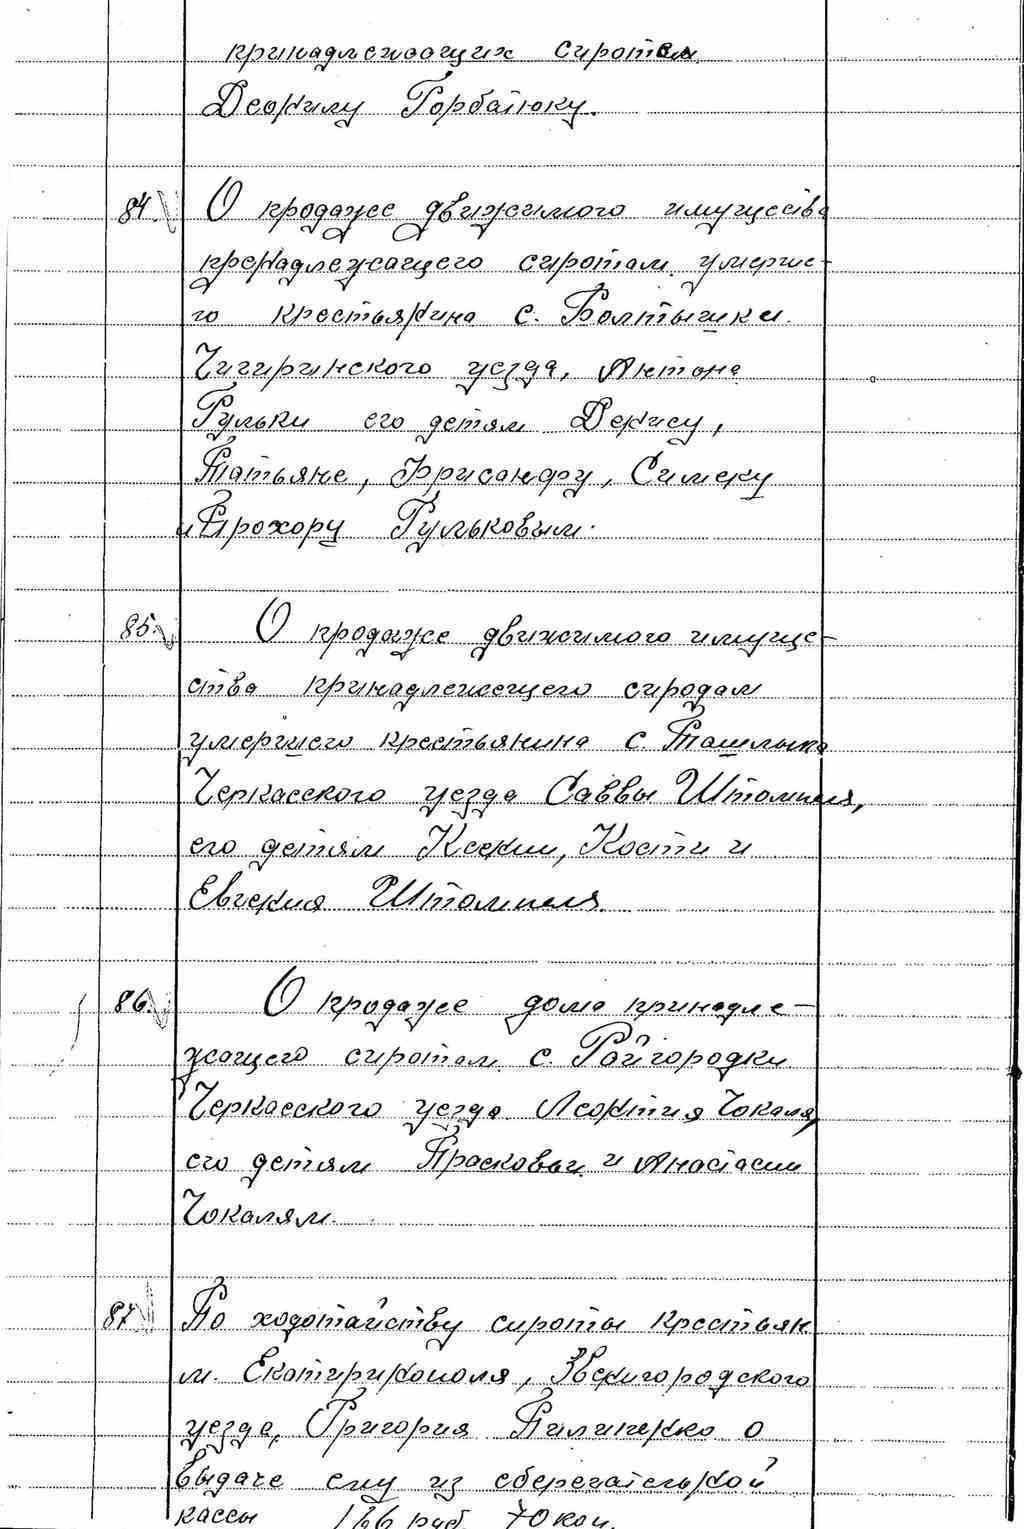 принадлежащих сиротам
Деонилу Горбатюку.
84. О продаже движимого имущества
пренадлежащего сиротам умерше-
го крестьянина с. Болтышки
Чигиринского уезда, Антона
Гульки его детям Денису,
Татьяне, Хрисанфу, Симеку
и Прохору Гульковым.
85. О продаже движимого имуще-
ства принадлежащего сиродам
умершего крестьянина с. Ташлыка
Черкасского уезда Саввы Штомпеля,
его детям Ксении, Кости и
Евгения Штомпеля.
86. О продаже дома принадле-
жащего сиротам с. Райгородки
Черкасского уезда Леонтия Чокаля,
его детям Прасковьи и Анастасии
Чокалям.
87 По ходотайству сироты крестьян
м. Екатиринополя, Звенигородского
уезда, Григория Пилипенко о
выдаче ему из сберегательной
кассы 166 руб. 70 коп.